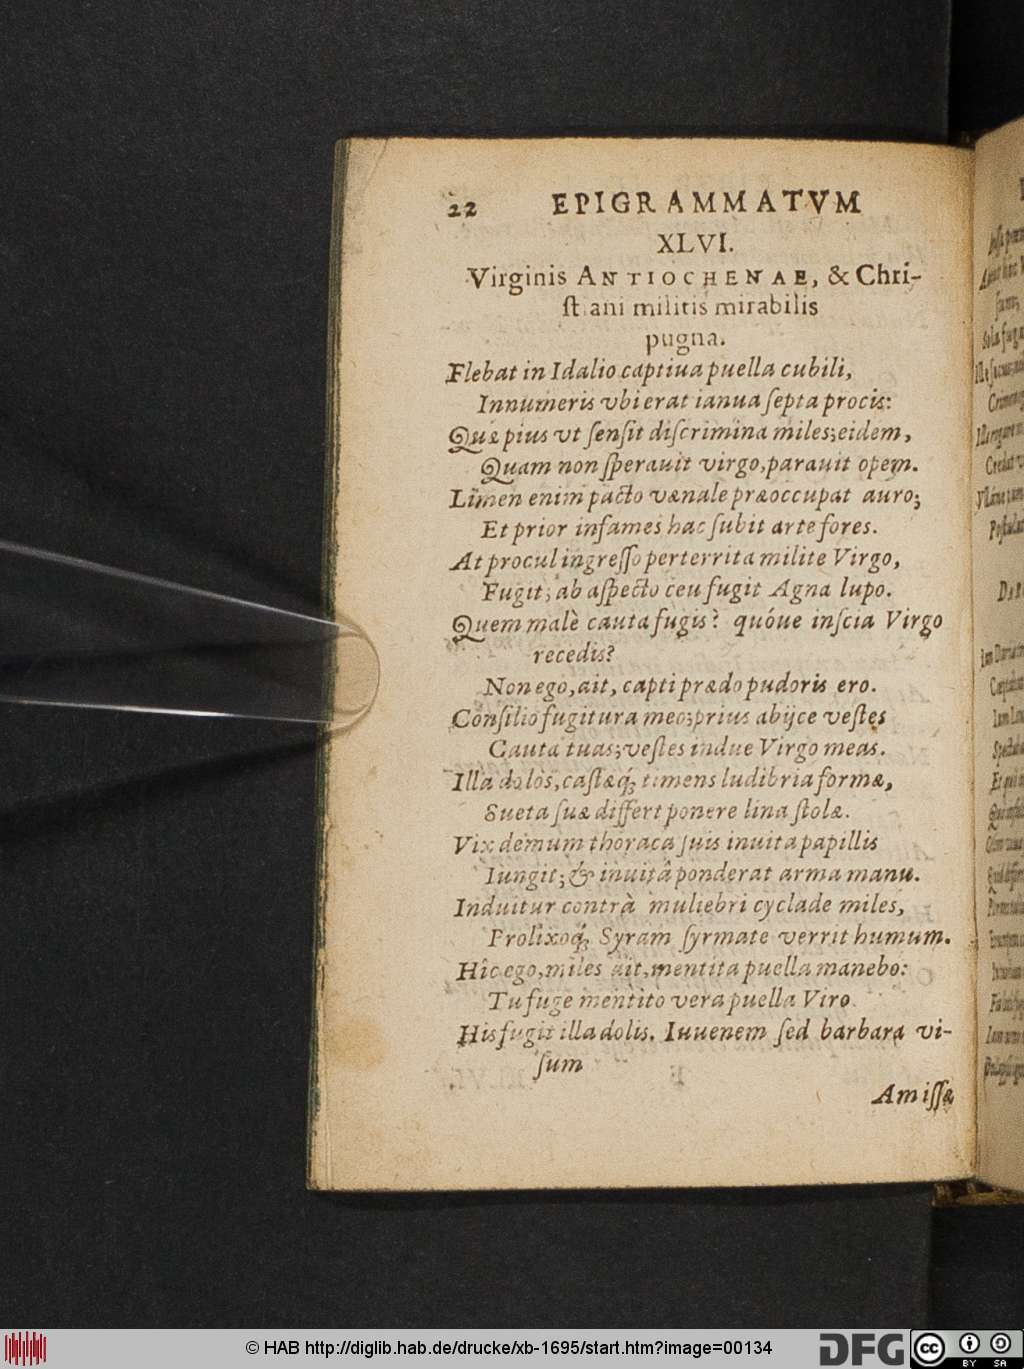 22 EPIGRAMMATVM
XLVI.
Virginis ANTIOCHENAE, & Chri-
stiani militis mirabilis
pugna.
Flebat in Idalio captiua puella cubili,
Innumeris vbi erat ianua ſepta procis:
Quæ pius vt ſenſit diſcrimina miles; eidem,
Quam non ſperauit virgo, parauit opem.
Limen enim pacto vænale præoccupat auro;
Et prior infames hac ſubit arte fores.
At procul ingreſſo perterrita milite Virgo,
Fugit; ab aſpecto ceu fugit Agna lupo.
Quem malè cauta fugis? quóue inſcia Virgo
recedis?
Non ego, ait, capti prædo pudoris ero.
Conſilio fugitura meo; prius abijce veſtes
Cauta tuas; veſtes indue Virgo meas.
Illa dolos, caſtæq́; timens ludibria formæ,
Sueta ſuæ differt ponere lina ſtolæ.
Vix demum thoraca ſuis inuita papillis
Iungit; & inuitâ ponderat arma manu.
Induitur contrà muliebri cyclade miles,
Prolixoq́; Syram ſyrmate verrit humum.
Hîc ego, miles ait, mentita puella manebo:
Tu fuge mentito vera puella Viro.
His fugit illa dolis. Iuuenem ſed barbara vi-
ſum
Amiſſæ
© HAB http://diglib.hab.de/drucke/xb-1695/start.htm?image=00134
DFG
cc
BY SA